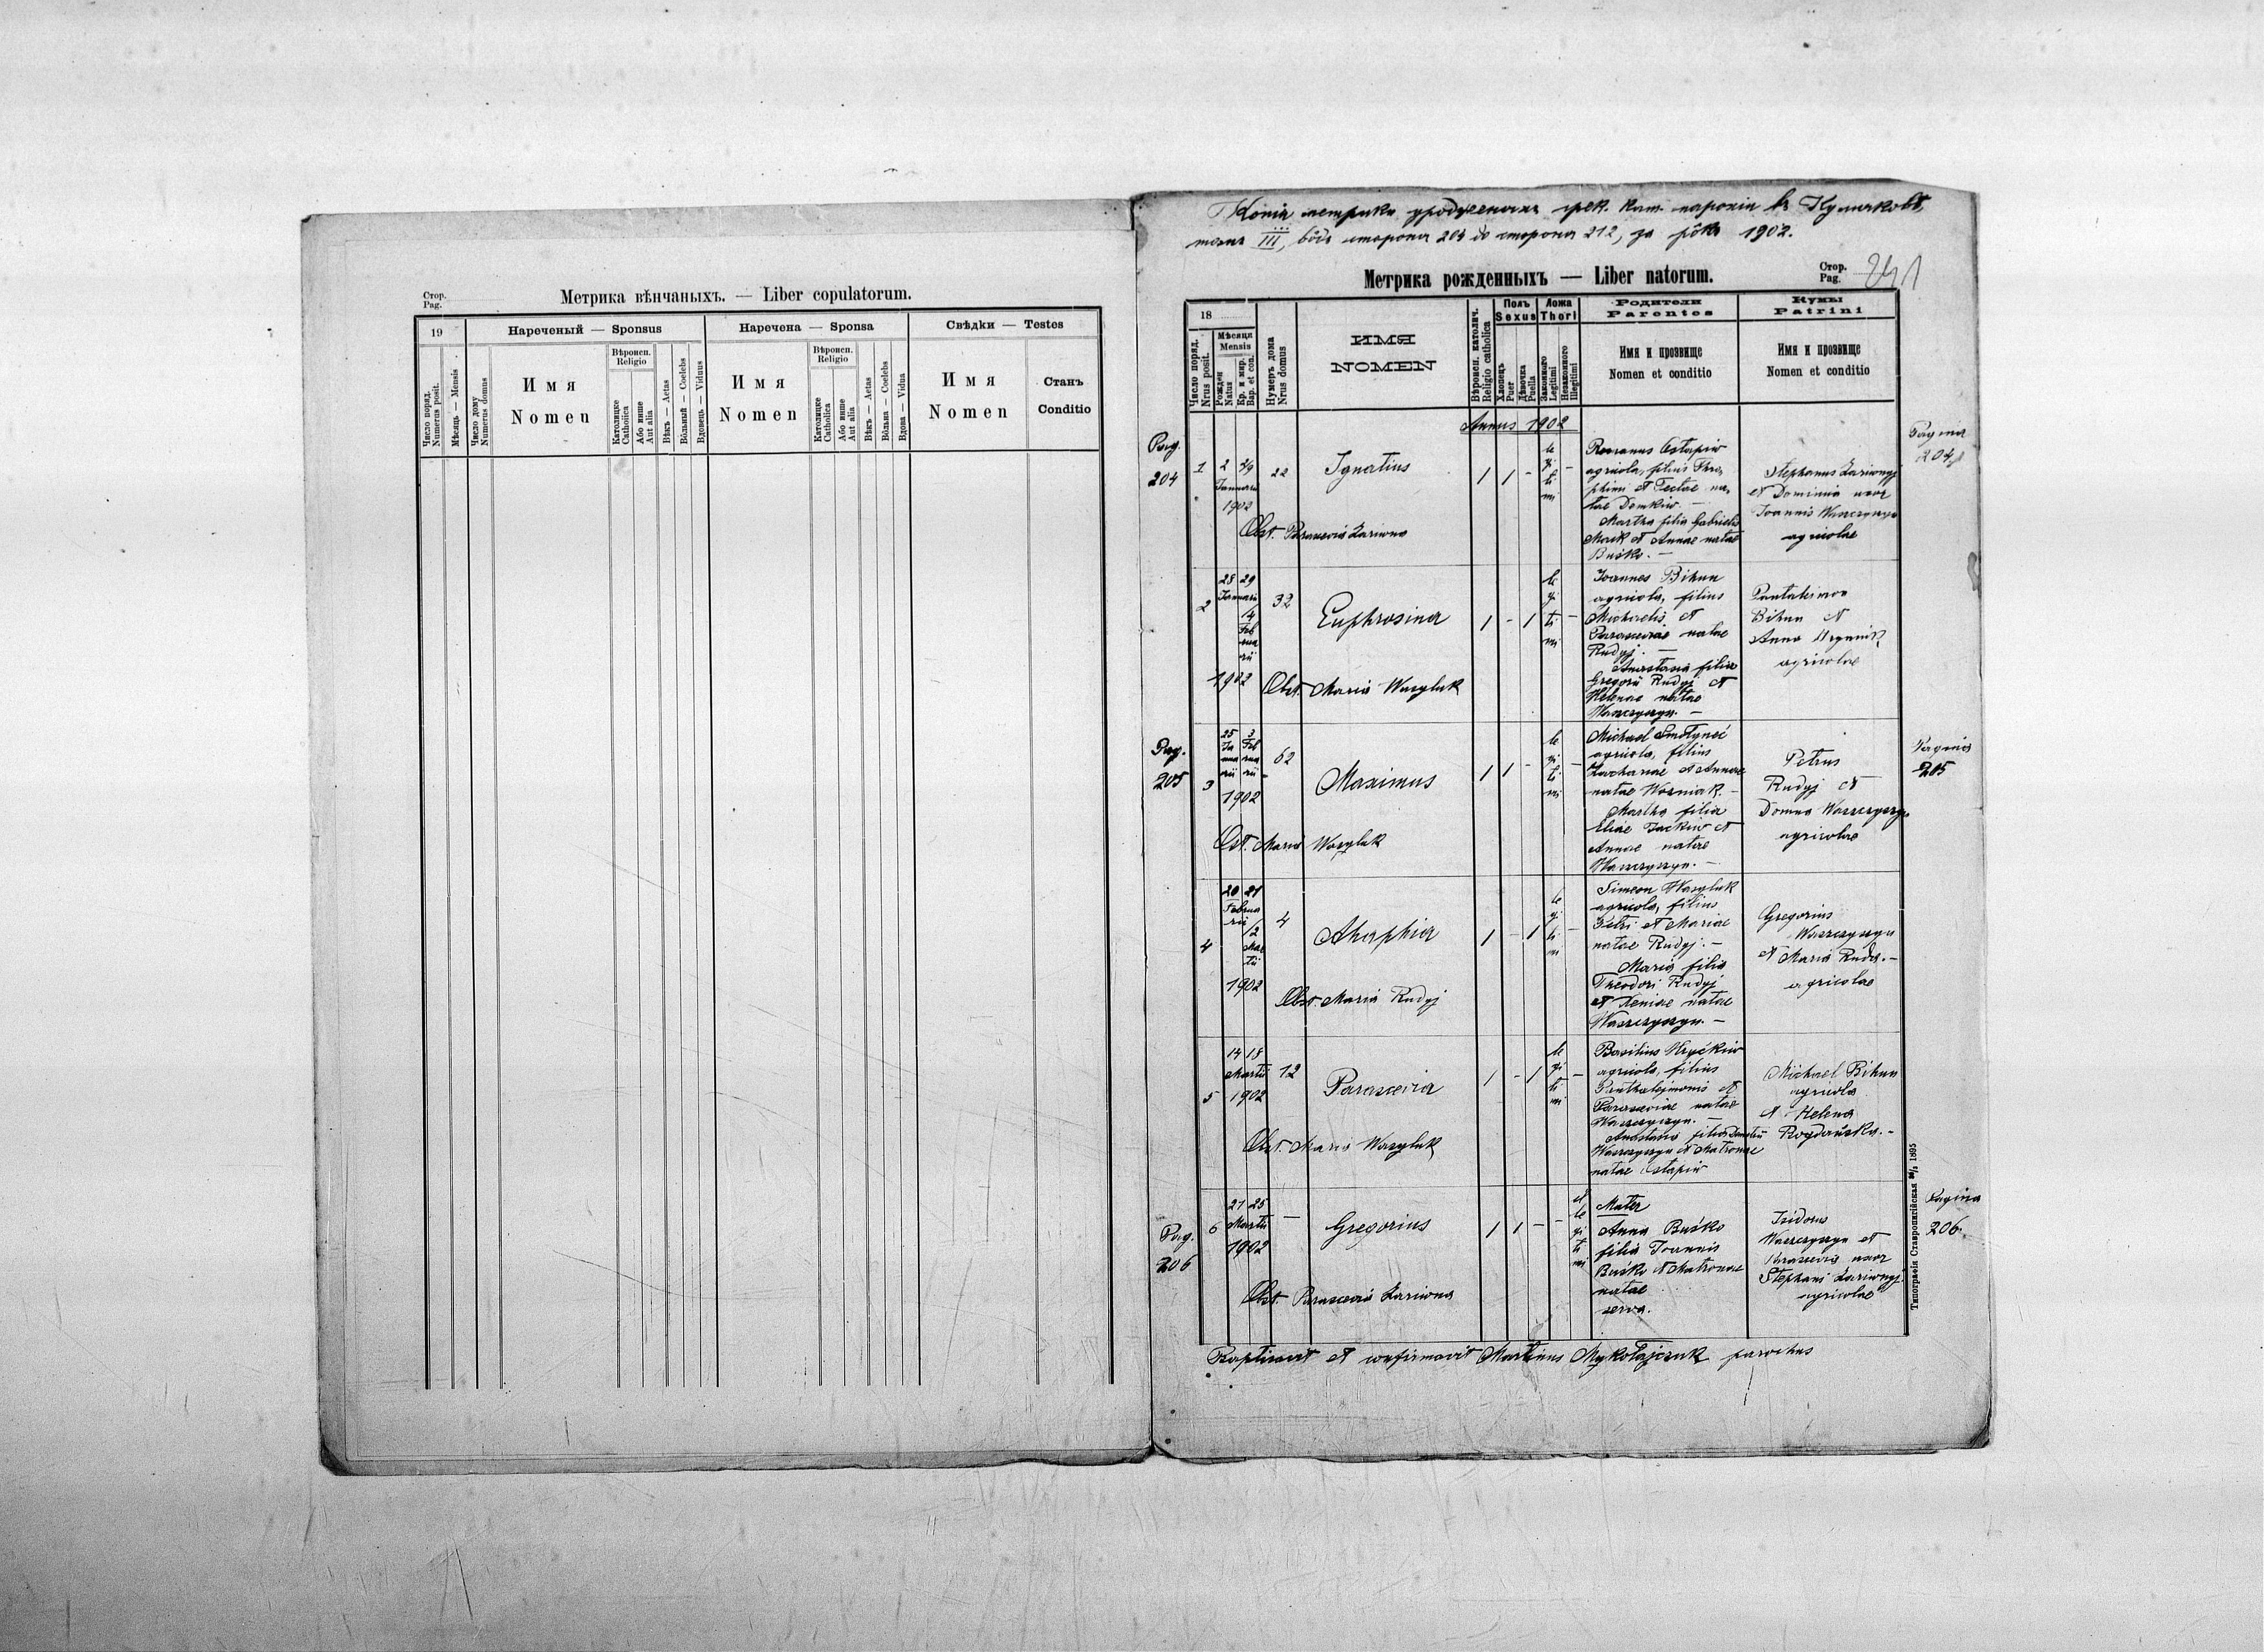 Стор.
Pag.
Метрика вѣнчаныхъ. — Liber copulatorum.
19
Нареченый — Sponsus
Наречена — Sponsa
Свѣдки — Testes
Число поряд.
Numerus posit.
Мѣсяць — Mensis
Число дому
Numerus domus
Имя
Nomen
Вѣроисп.
Religio
Католицке
Catholica
Або инше
Aut alia
Вѣкъ — Aetas
Вôльный — Coelebs
Вдовець — Viduus
Имя
Nomen
Вѣроисп.
Religio
Католицке
Catholica
Або инше
Aut alia
Вѣкъ — Aetas
Вôльна — Coelebs
Вдова — Vidua
Имя
Nomen
Станъ
Conditio
Копія метрики урод. грек. кат. парохіи
III, вôдъ сторона 204 до сторона 212, за рôкъ 1902.
Метрика рожденныхъ — Liber natorum.
Стор.
Pag.
18
Число поряд.
Nrus posit.
Мѣсяця
Mensis
Рожден
Natus
Кр. и мир.
Bap. et con.
Нумеръ дома
Nrus domus
ИМЯ
NOMEN
Вѣроисп. католич.
Religio catholica
Полъ
Sexus
Хлопецъ
Puer
Дѣвочка
Puella
Ложа
Thori
Законного
Legitimi
Незаконного
Illegitimi
Родители
Parentes
Имя и прозвище
Nomen et conditio
Кумы
Patrini
Имя и прозвище
Nomen et conditio
Annus 1902
Pag.
204
1
2
Januarii
1902
22
Ignatius
1 1 -
legitimi
-
Romanus Ostapiw
agricola, filius
et Teclae na-
tae Domkiw. —
Martha filia Gabrielis
et Annae natae
Buśko. —
Stephanus Lariwnyj
et Dominia uxor
Joannis Waszczyszyn
agricolae
Pagina
204
Obst. Parascevia Lariwna
2
28 29
Januarii
14
Februarii
1902
32
Euphrosina
1 - 1
legitimi
-
Joannes Bihun
agricola, filius
Michaelis et
Parasceviae natae
Rudyj. —
Anastasia filia
Gregorii Rudyj et
Helenae natae
Waszczyszyn. —
Pantaleimon
Bihun et
Anna
agricolae
Obst. Maria Wasyluk
Pag.
205
3
25 3
Januarii Februarii
1902
62
Maximus
1 1 -
legitimi
-
Michael Smolyneć
agricola, filius
Zachariae et Annae
natae Wozniak. —
Martha filia
Eliae Jackiw et
Annae natae
Waszczyszyn. —
Petrus
Rudyj et
Domna Waszczyszyn
agricolae
Pagina
205
Obst. Maria Wasyluk
4
20 21
Februarii
12
Martii
1902
4
Ahaphia
1 - 1
legitimi
-
Simeon Wasyluk
agricola, filius
Petri et Mariae
natae Rudyj. —
Maria filia
Theodori Rudyj
et Xeniae natae
Waszczyszyn. —
Gregorius
Waszczyszyn
et Maria Ruda. —
agricolae
Obst. Maria Rudyj
5
14 18
Martii
1902
12
Parascevia
1 - 1
legitimi
-
Basilius Hryćkiw
agricola, filius
Panthalejmonis et
Parasceviae natae
Waszczyszyn. —
Anastasia filia Demetrii
Waszczyszyn et Matronae
natae Ostapiw
Michael Bihun
agricola
et Helena
Bogdańska. —
Obst. Maria Wasyluk
Pag.
206
6
21 25
Martii
1902
—
Gregorius
1 1 -
-
illegitimi
Mater
Anna Buśko
filia Joannis
Buśko et Matronae
natae
serva.
Isidorus
Waszczyszyn et
Parascevia uxor
Stephani Lariwnyj
agricolae
Pagina
206.
Obst. Parascevia Lariwna
Baptisavit et confirmavit Martinus Mykołajczuk parochus
Типографія Ставропигійская 1895